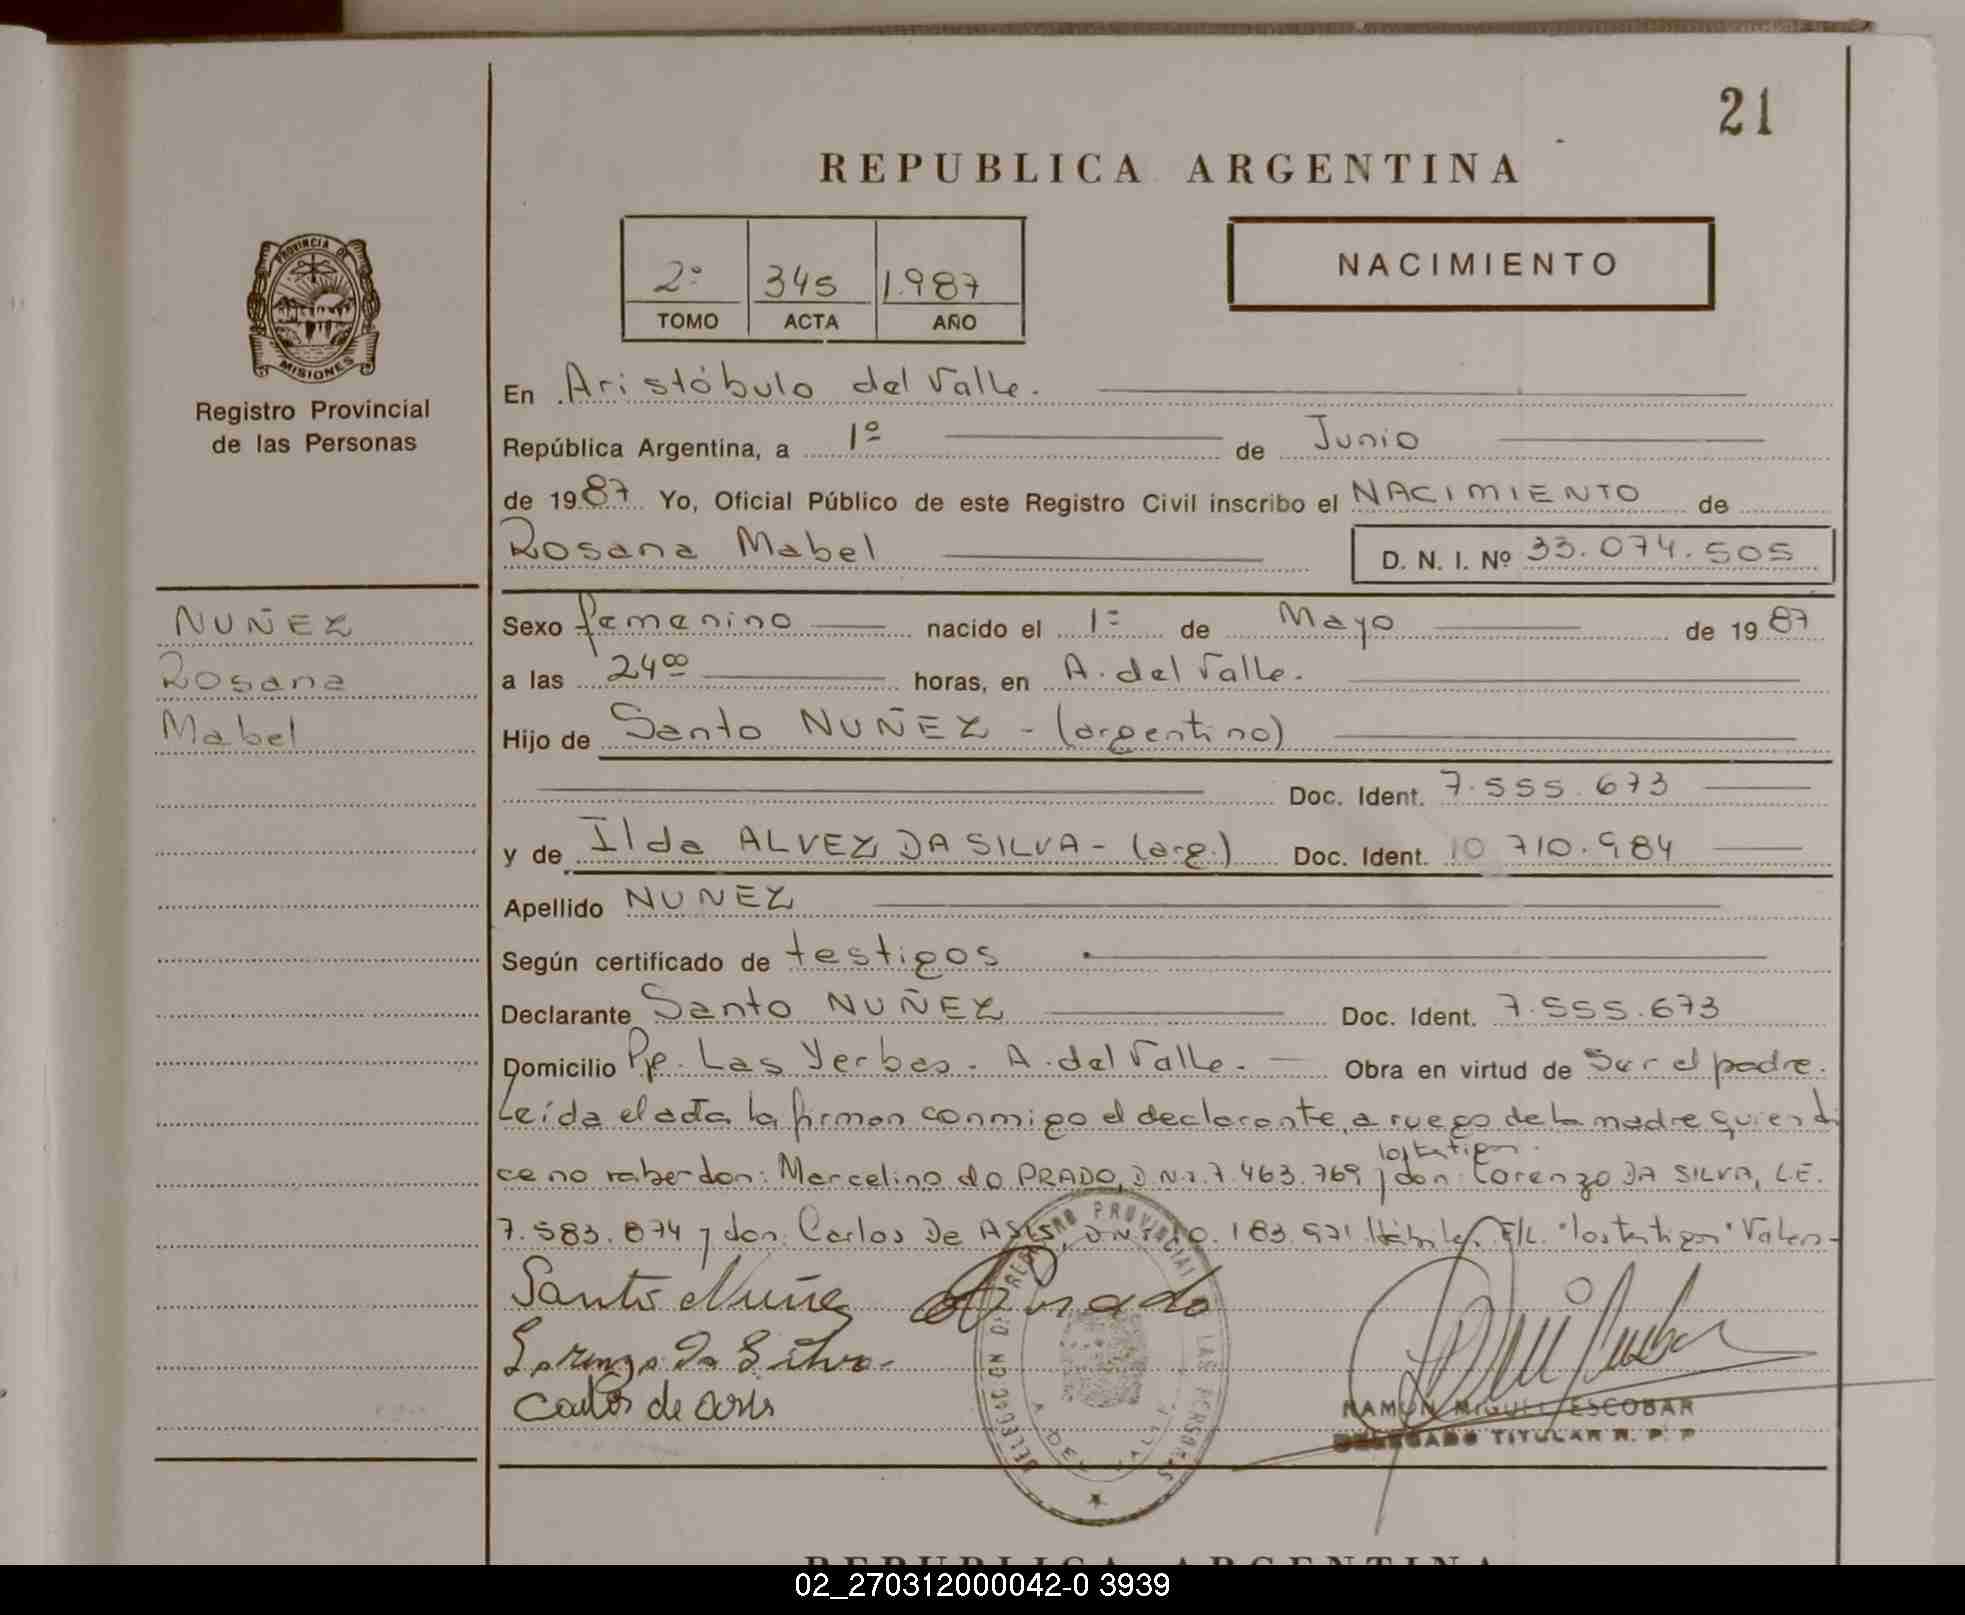 21
REPUBLICA ARGENTINA
PROVINCIA DE
MISIONES
Registro Provincial
de las Personas
2º 345 1.987
TOMO ACTA AÑO
NACIMIENTO
En Aristóbulo del Valle.
República Argentina, a 1º de Junio
de 1987 Yo, Oficial Público de este Registro Civil inscribo el NACIMIENTO de
Rosana Mabel D. N. I. Nº 33.074.505
NUÑEZ
Rosana
Mabel
Sexo femenino nacido el 1º de Mayo de 1987
a las 24oo horas, en A. del Valle.
Hijo de Santo NUÑEZ - (argentino)
Doc. Ident. 7.555.673
y de Ilda ALVEZ DA SILVA - (arg.) Doc. Ident. 10 710.984
Apellido NUNEZ
Según certificado de testigos
Declarante Santo NUÑEZ Doc. Ident. 7.555.673
Domicilio Pje. Las Yerbas. A. del Valle. - Obra en virtud de Ser el padre.
Leída el acta la firman conmigo el declarante, a ruego de la madre quien di
los testigos
ce no saber don: Marcelino do PRADO, D.N.I. 7.463.769 y don: Lorenzo DA SILVA, L.E.
7.583.874 y don: Carlos De ASIS, DNI 10.183.971 Hábiles. E/L. "los testigos" Valen-
Santo Nuñez Prado
Lorenzo Da Silva
Carlos de Asis
DELEGACION DEL REGISTRO PROVINCIAL DE LAS PERSONAS
A. DEL VALLE
RAMON MIGUEL ESCOBAR
DELEGADO TITULAR R. P. P
REPUBLICA ARGENTINA
02_270312000042-0 3939